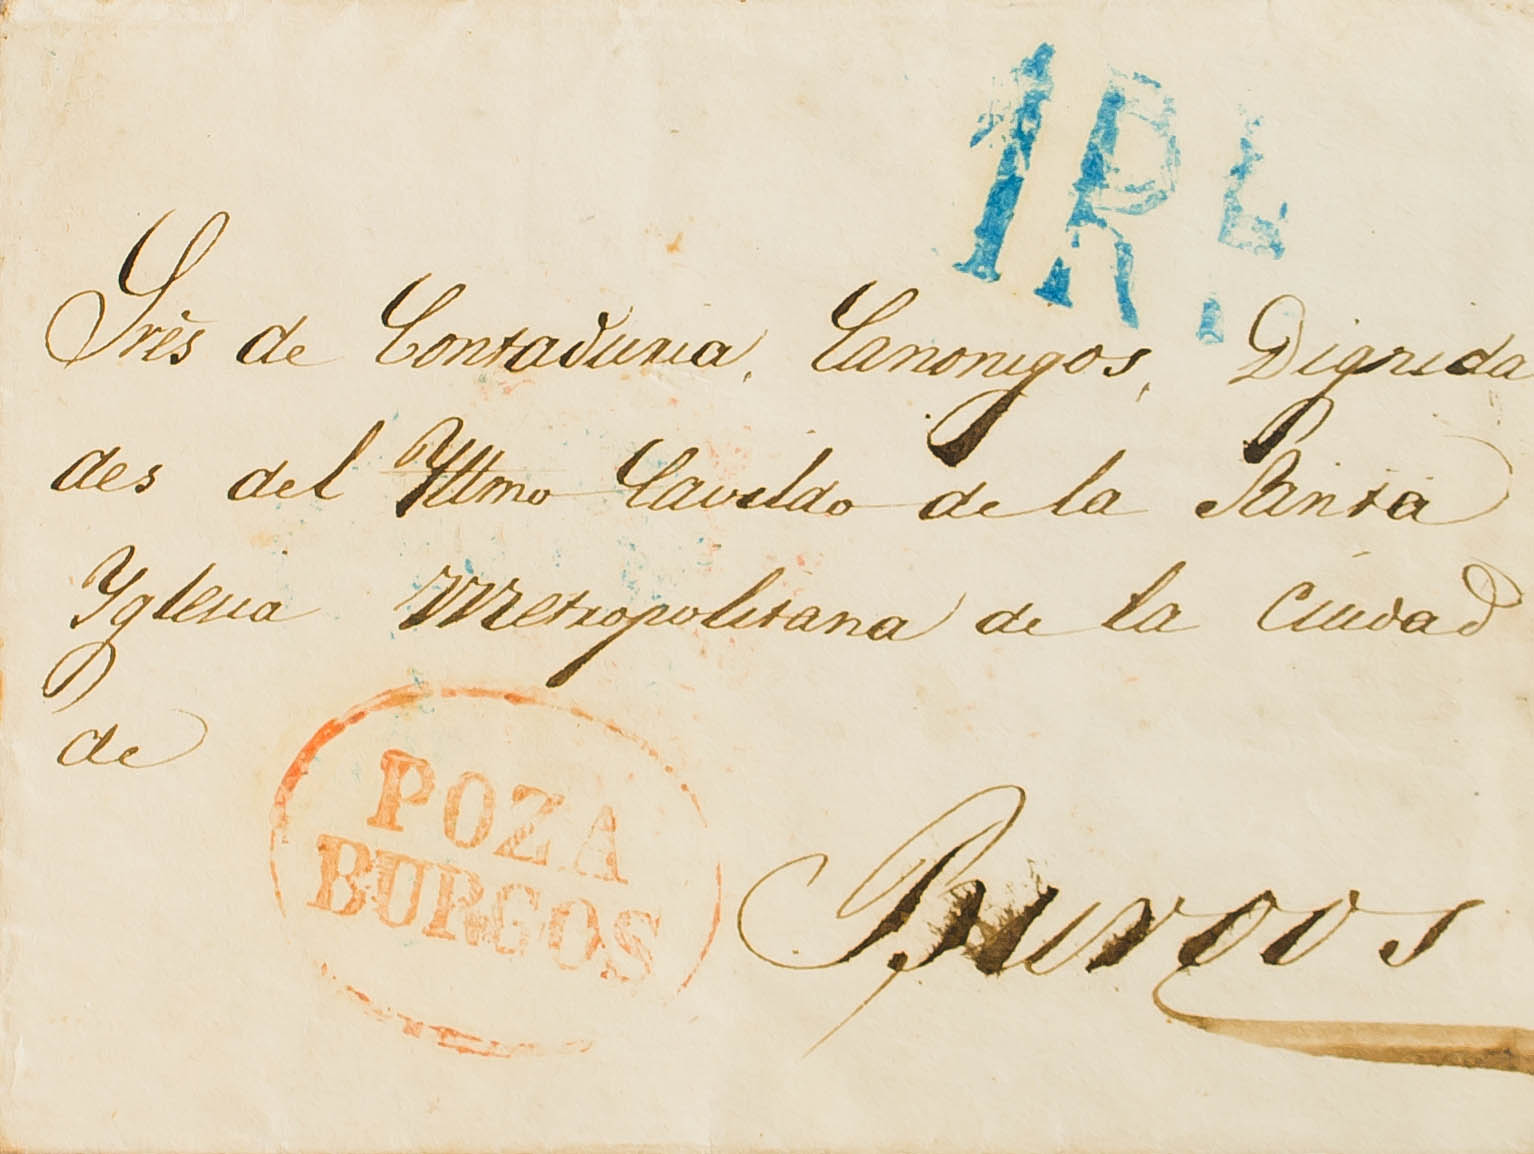 1 Rl.
Srès de Contaduria, Canonigos, Dignida
des del Yltmo Cavildo de la Santa
Yglesia Metropolitana de la Ciudad
de
POZA
BURGOS
Burgos